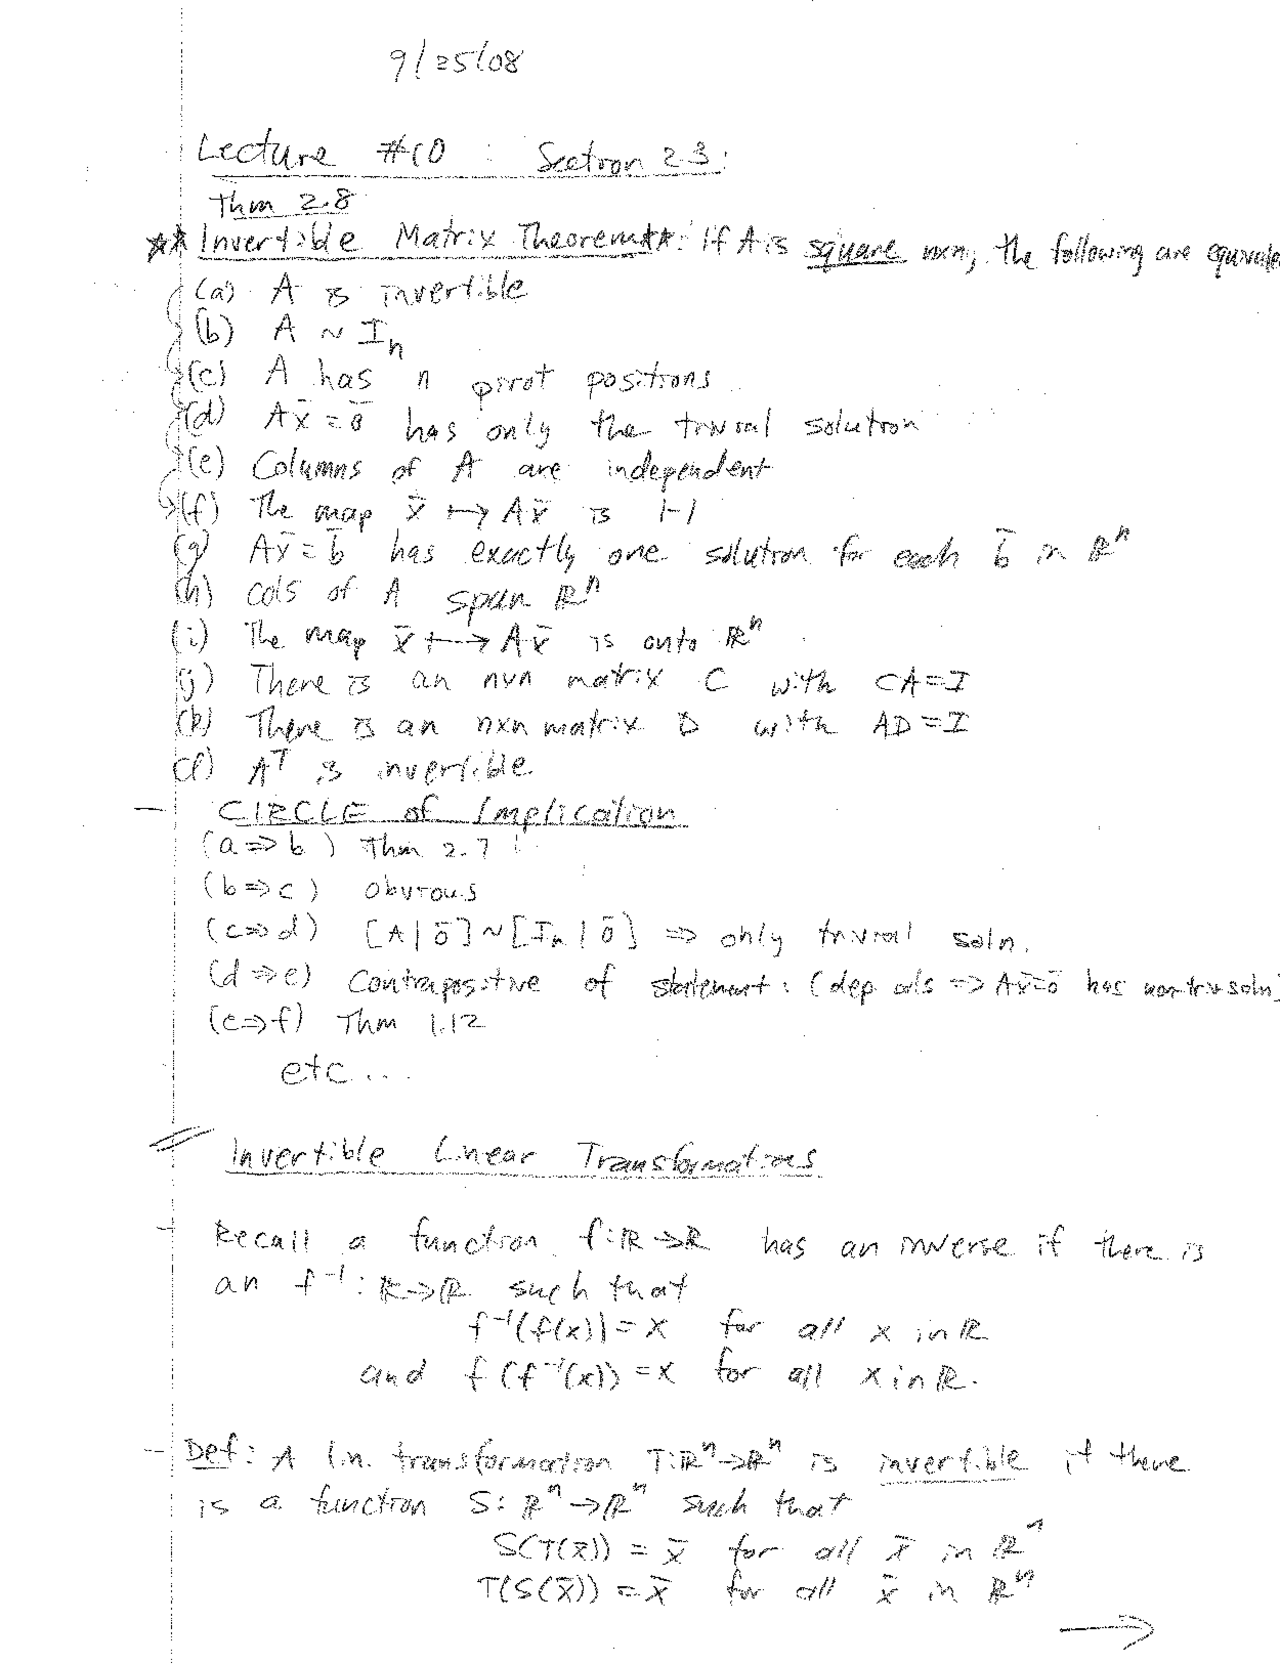 9/25/08
Lecture #10 : Section 2.3:
Thm 2.8
★★ Invertible Matrix Theorem★★: If A is square nxn, the following are equivale
(a) A is invertible
(b) A ~ Iₙ
(c) A has n pivot positions
(d) Ax̄ = 0̄ has only the trivial solution
(e) Columns of A are independent
(f) The map x̄ ↦ Ax̄ is 1-1
(g) Ax̄ = b̄ has exactly one solution for each b̄ in ℝⁿ
(h) cols of A span ℝⁿ
(i) The map x̄ ↦ Ax̄ is onto ℝⁿ
(j) There is an nxn matrix C with CA = I
(k) There is an nxn matrix D with AD = I
(l) Aᵀ is invertible
– CIRCLE of Implication
(a ⇒ b) Thm 2.7
(b ⇒ c) obvious
(c ⇒ d) [A | 0̄] ~ [Iₙ | 0̄] ⇒ only trivial soln.
(d ⇒ e) Contrapositive of statement: (dep cols ⇒ Ax̄=0̄ has nontriv soln)
(e ⇒ f) Thm 1.12
etc...
Invertible Linear Transformations
– Recall a function f: ℝ → ℝ has an inverse if there is
an f⁻¹: ℝ → ℝ such that
f⁻¹(f(x)) = x for all x in ℝ
and f(f⁻¹(x)) = x for all x in ℝ.
– Def: A lin. transformation T: ℝⁿ → ℝⁿ is invertible if there
is a function S: ℝⁿ → ℝⁿ such that
S(T(x̄)) = x̄ for all x̄ in ℝⁿ
T(S(x̄)) = x̄ for all x̄ in ℝⁿ
→